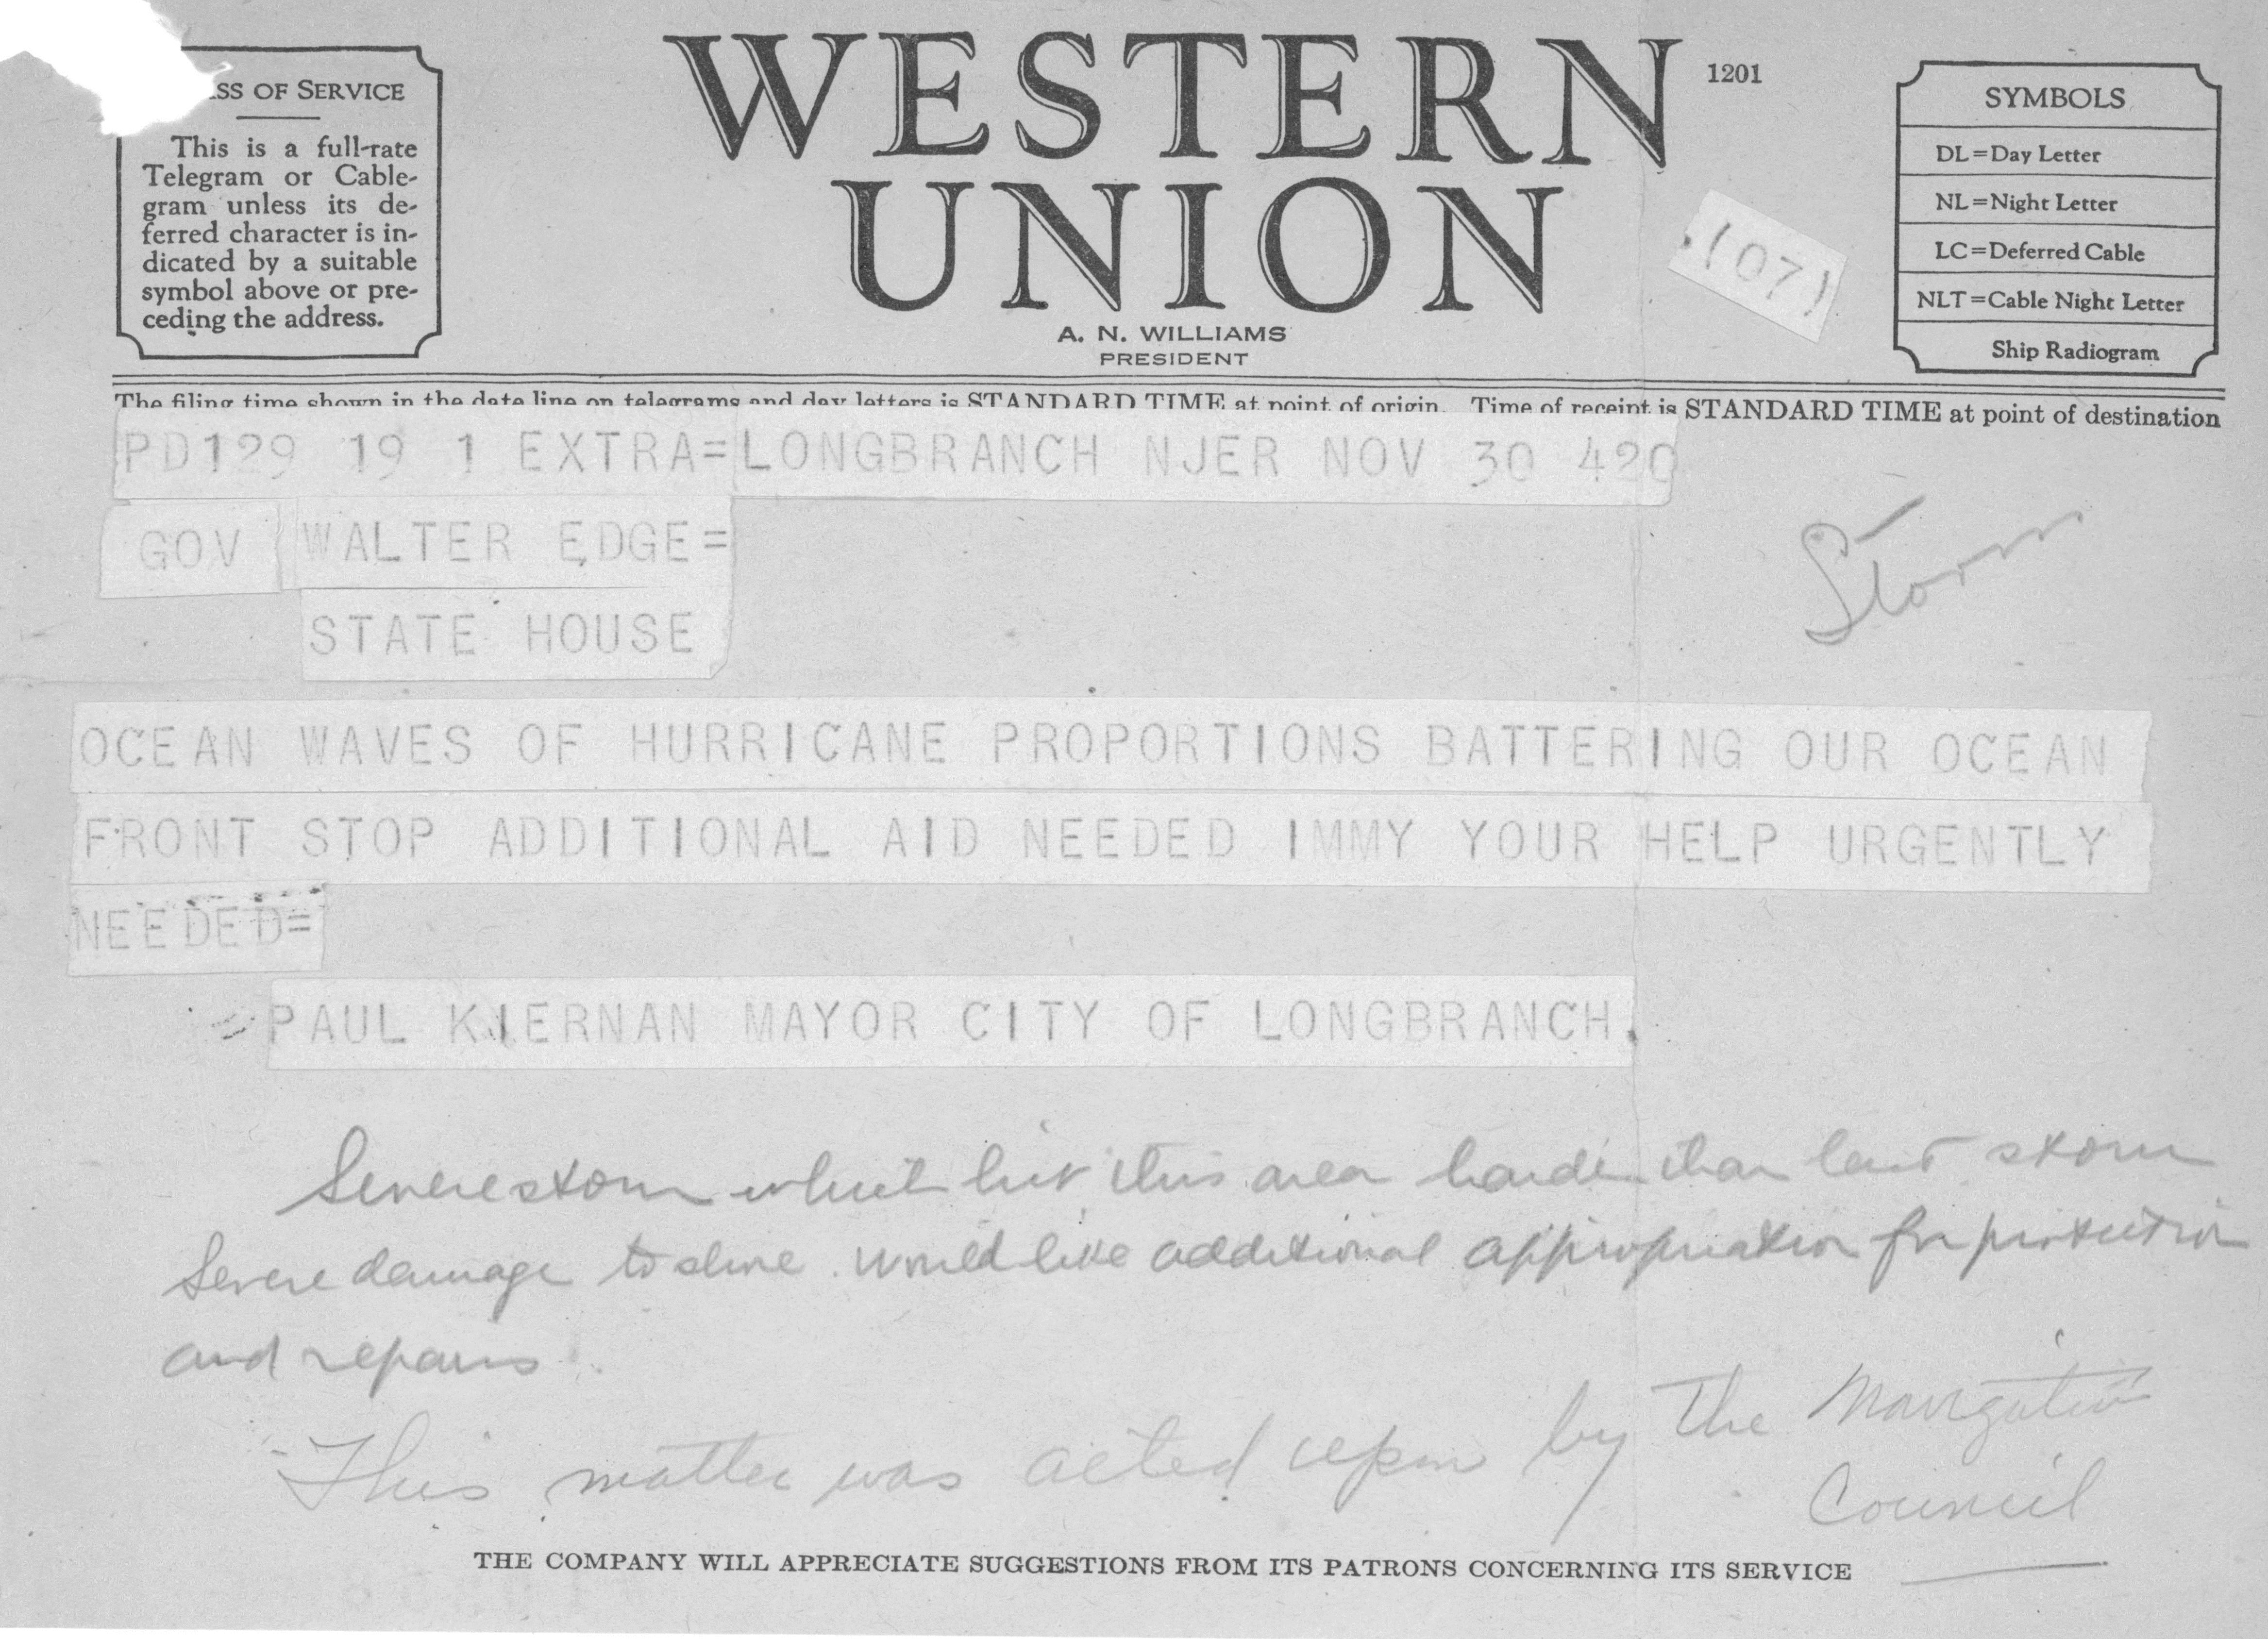 WESTERN
UNION
1201
A. N. WILLIAMS
PRESIDENT
SS OF SERVICE
This is a full-rate
Telegram or Cable-
gram unless its de-
ferred character is in-
dicated by a suitable
symbol above or pre-
ceding the address.
SYMBOLS
DL=Day Letter
NL=Night Letter
LC=Deferred Cable
NLT=Cable Night Letter
Ship Radiogram
(07)
The filing time shown in the date line on telegrams and day letters is STANDARD TIME at point of origin. Time of receipt is STANDARD TIME at point of destination
PD129 19 1 EXTRA=LONGBRANCH NJER NOV 30 420
GOV WALTER EDGE=
STATE HOUSE
Storm
OCEAN WAVES OF HURRICANE PROPORTIONS BATTERING OUR OCEAN
FRONT STOP ADDITIONAL AID NEEDED IMMY YOUR HELP URGENTLY
NEEDED=
=PAUL KIERNAN MAYOR CITY OF LONGBRANCH.
Severe storm which hit this area harder than last storm
Severe damage to shore. Would like additional appropriation for protection
and repairs.
This matter was acted upon by the Navigation
Council
THE COMPANY WILL APPRECIATE SUGGESTIONS FROM ITS PATRONS CONCERNING ITS SERVICE